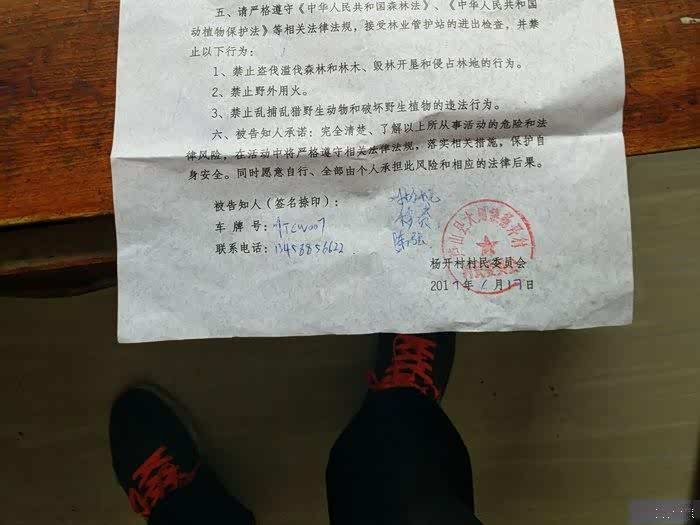 五、请严格遵守《中华人民共和国森林法》、《中华人民共和国
动植物保护法》等相关法律法规，接受林业管护站的进出检查，并禁
止以下行为：
1、禁止盗伐滥伐森林和林木、毁林开垦和侵占林地的行为。
2、禁止野外用火。
3、禁止乱捕乱猎野生动物和破坏野生植物的违法行为。
六、被告知人承诺：完全清楚、了解以上所从事活动的危险和法
律风险，在活动中将严格遵守相关法律法规，落实相关措施，保护自
身安全。同时愿意自行、全部由个人承担此风险和相应的法律后果。
被告知人（签名捺印）：
车 牌 号：
联系电话：13458856622
杨开村村民委员会
2017年6月17日